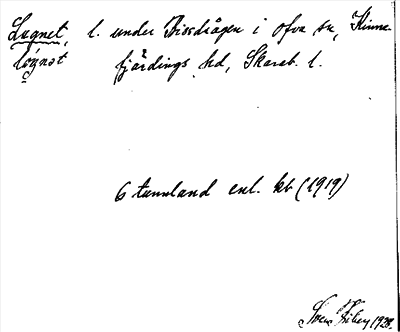 Lugnet, l. under Bissdrågen i Ova sn, Kinne-
fjärdings hd, Skarab. l.
6 tunnland enl. kb (1919)
Sven 1928.